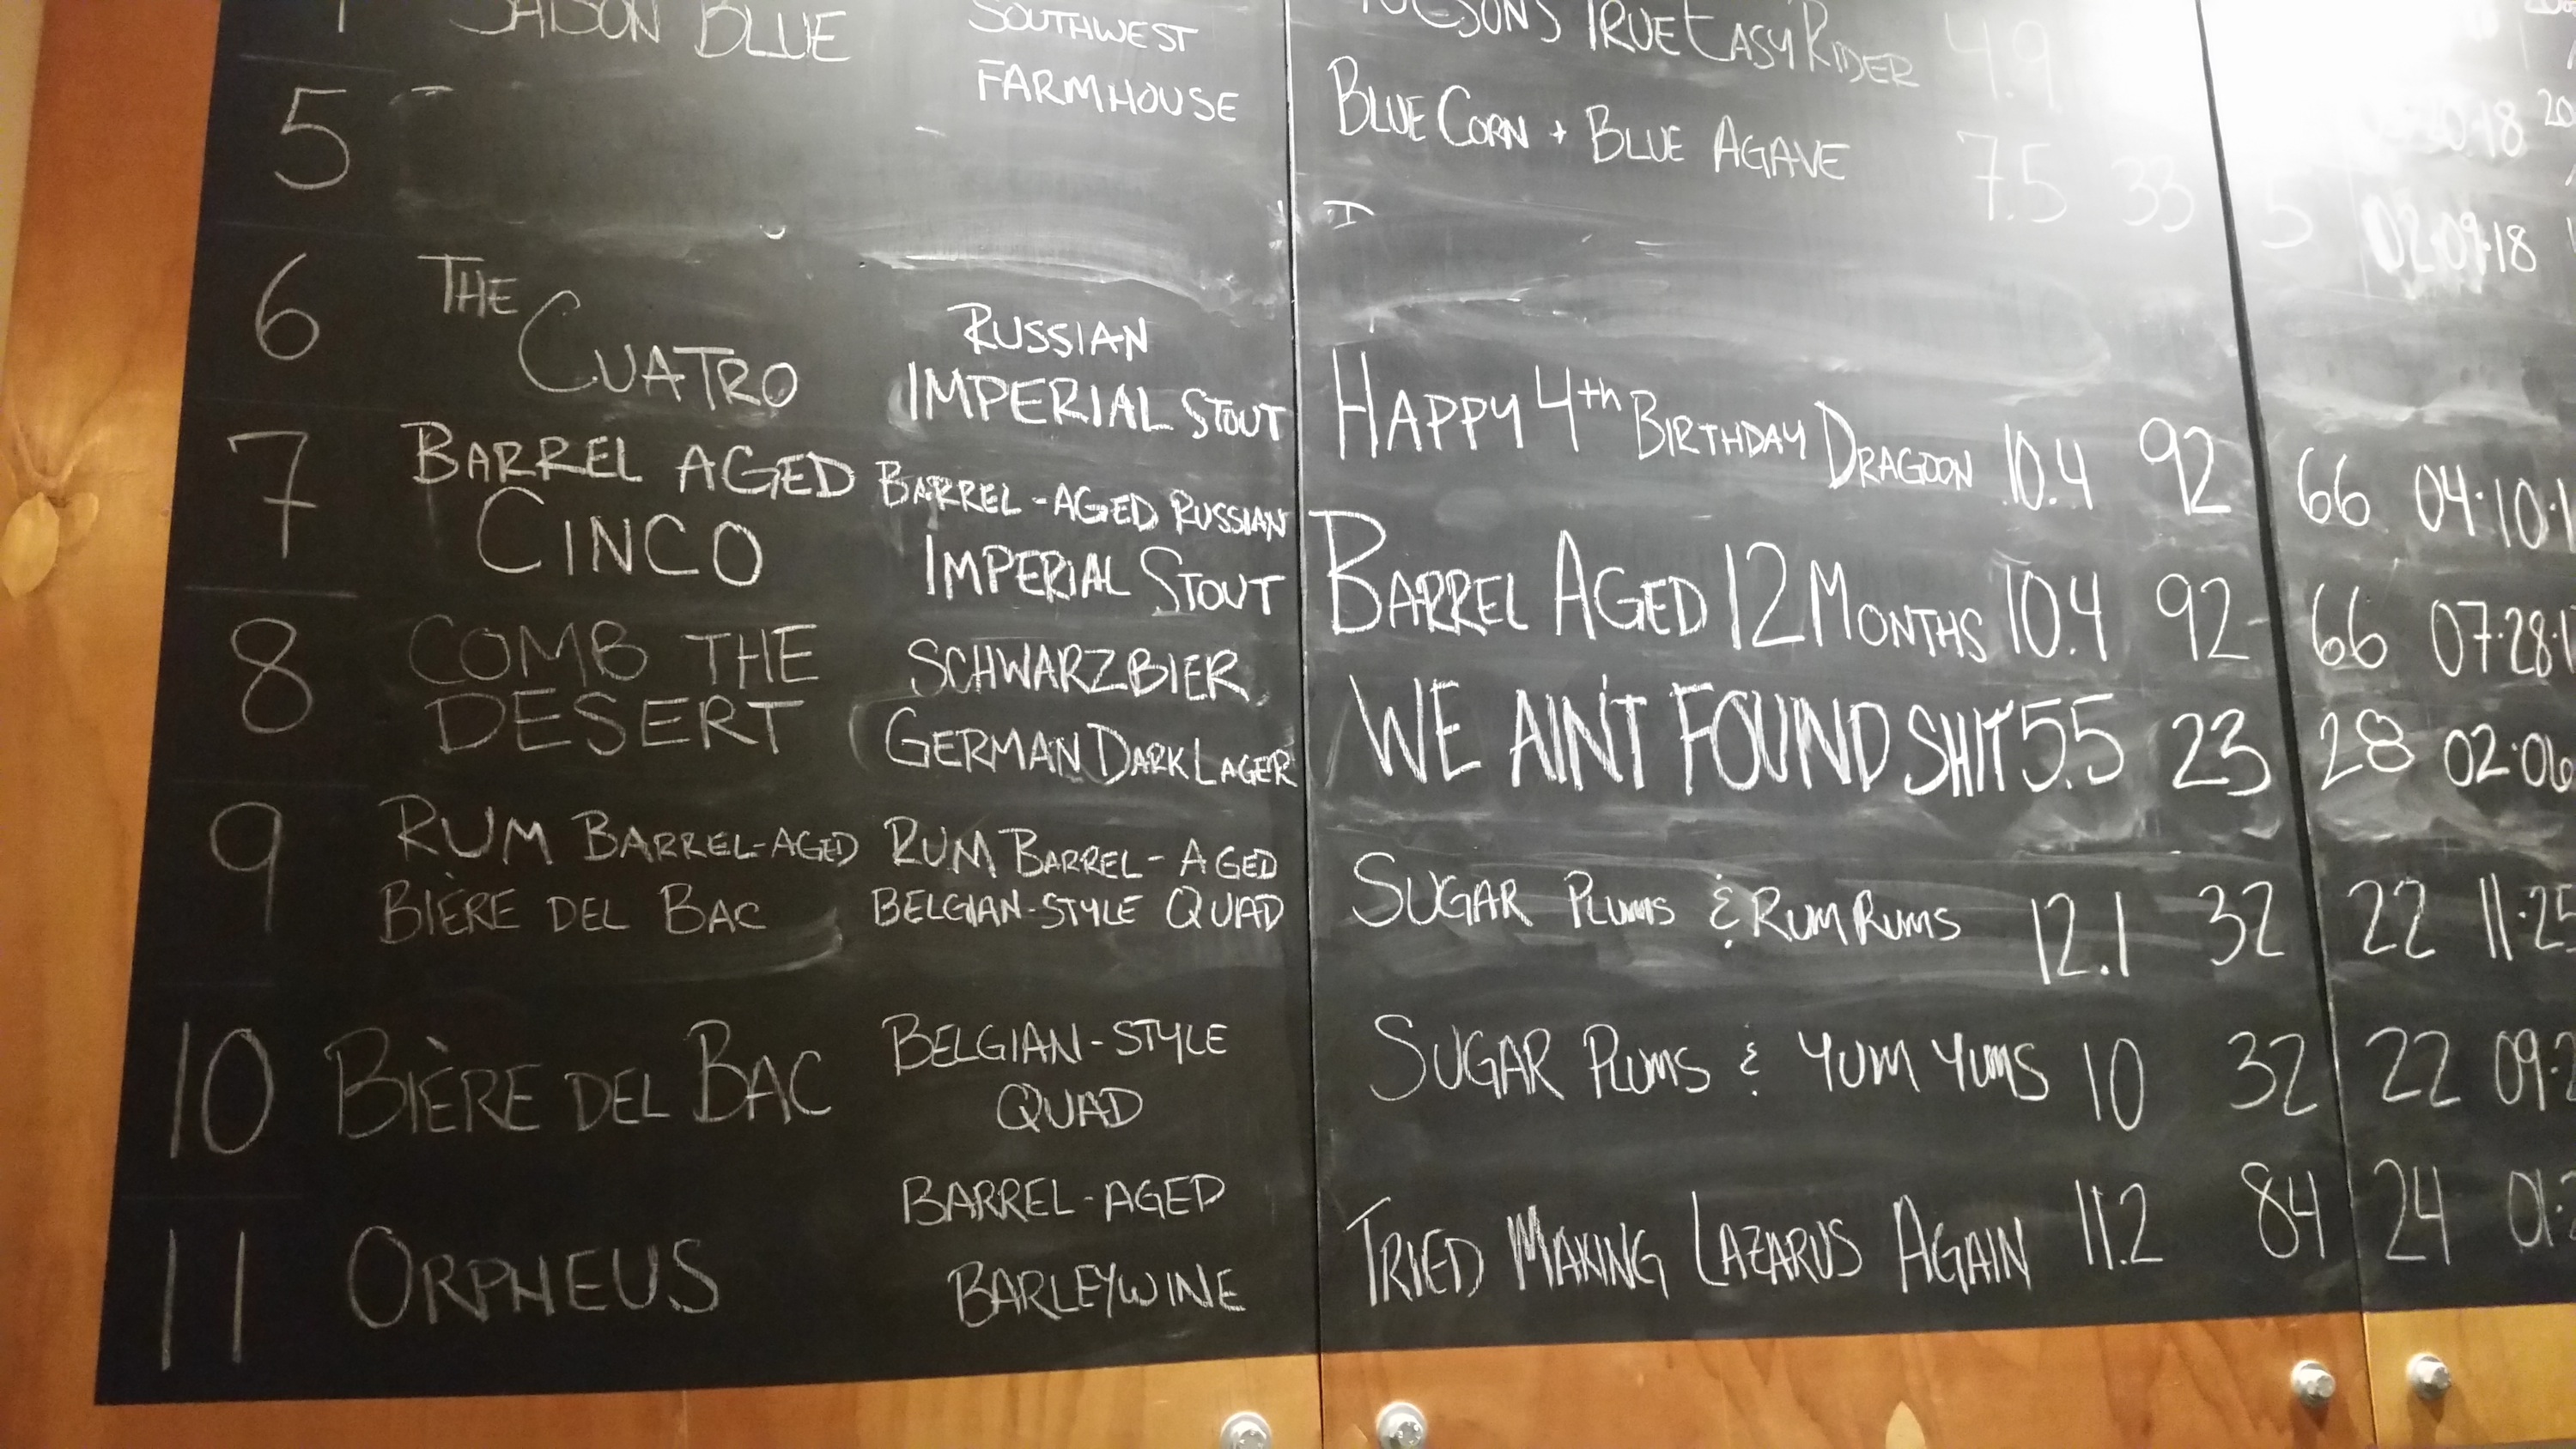 SAISON BLUE SOUTHWEST TRUE EASY RIDER 4.9
FARMHOUSE BLUE CORN + BLUE AGAVE 7.5 33 5 02·09·18
5
6 THE CUATRO RUSSIAN
IMPERIAL STOUT HAPPY 4th BIRTHDAY DRAGOON 10.4 92 66 04·10·1
7 BARREL AGED BARREL-AGED RUSSIAN
CINCO IMPERIAL STOUT BARREL AGED 12 MONTHS 10.4 92 66 07·28·1
8 COMB THE SCHWARZBIER
DESERT GERMAN DARK LAGER WE AIN'T FOUND SHIT 5.5 23 28 02·06
9 RUM BARREL-AGED RUM BARREL-AGED
BIÈRE DEL BAC BELGIAN-STYLE QUAD SUGAR PLUMS & RUM RUMS 12.1 32 22 11·25
10 BIÈRE DEL BAC BELGIAN-STYLE
QUAD SUGAR PLUMS & YUM YUMS 10 32 22 09·2
BARREL-AGED
11 ORPHEUS BARLEYWINE TRIED MAKING LAZARUS AGAIN 11.2 84 24 01·